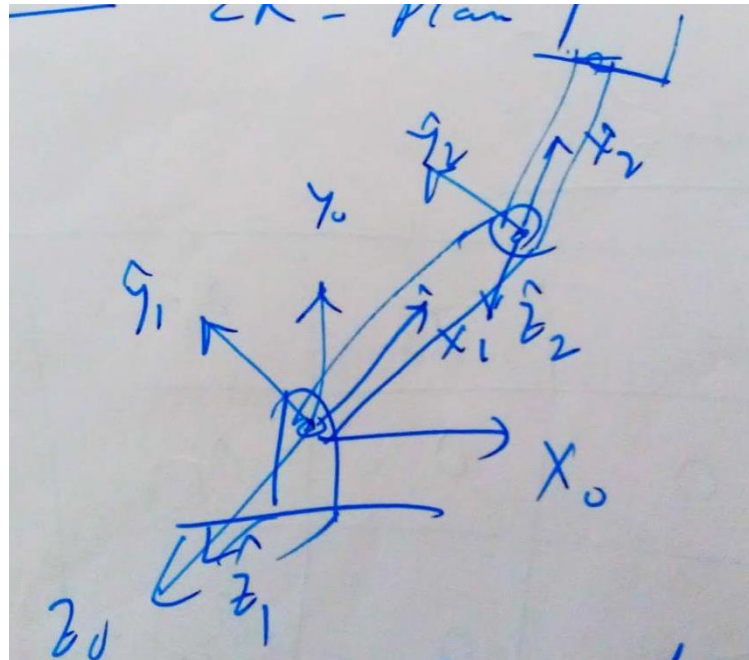 2R - Plan
ŷ₂
x̂₂
Y₀
ŷ₁
x₁
ẑ₂
X₀
ẑ₁
z₀